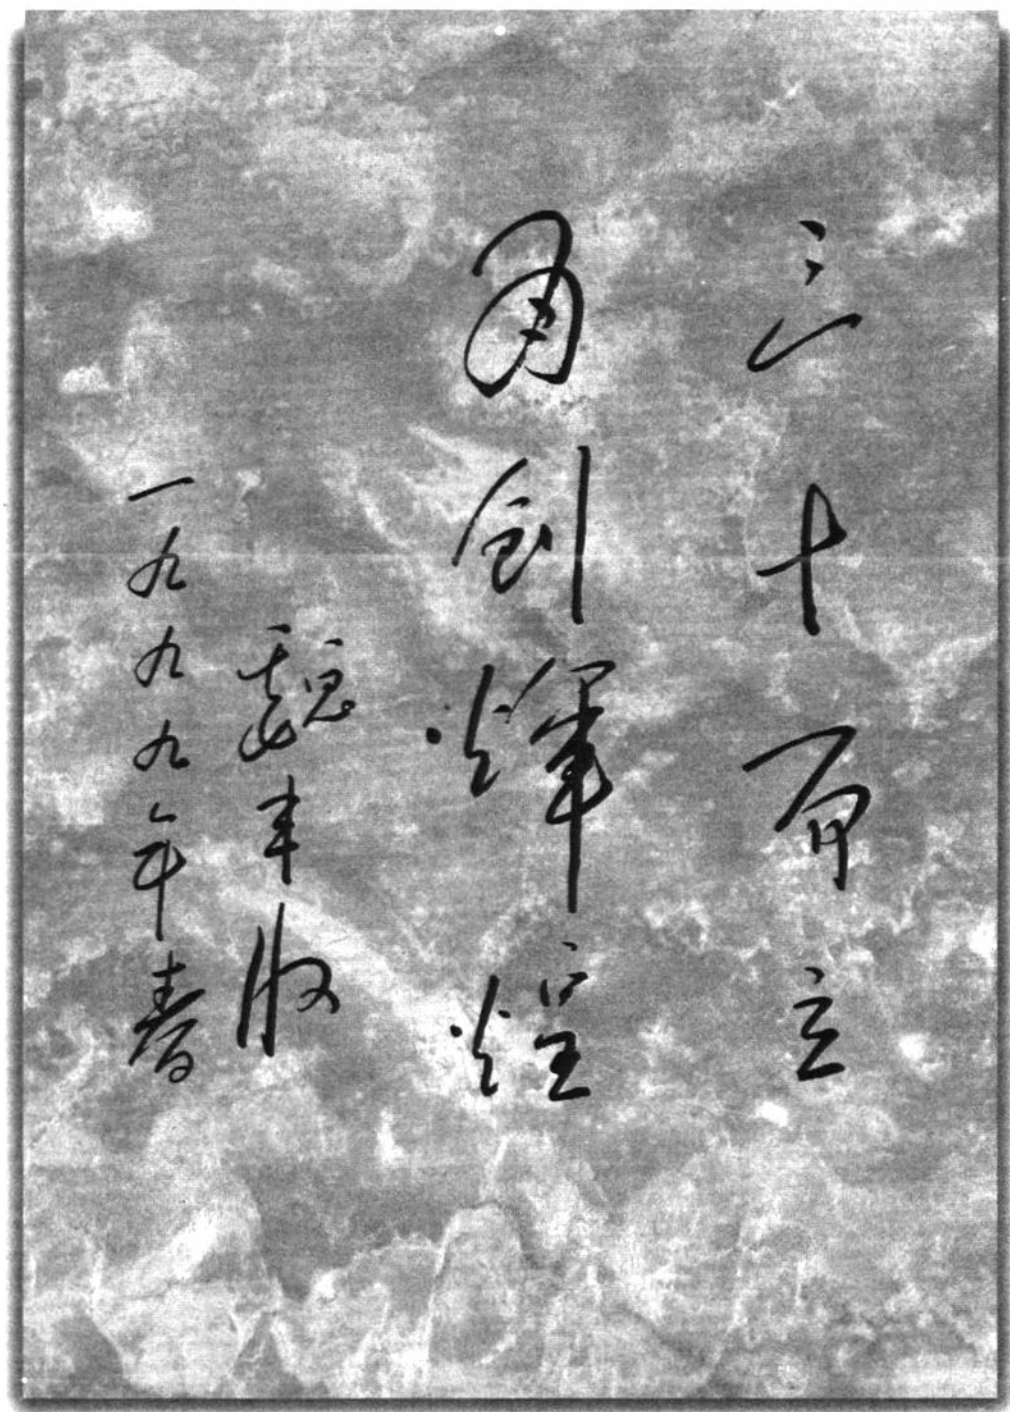 三十而立
再创辉煌
魏丰收
一九九九年春